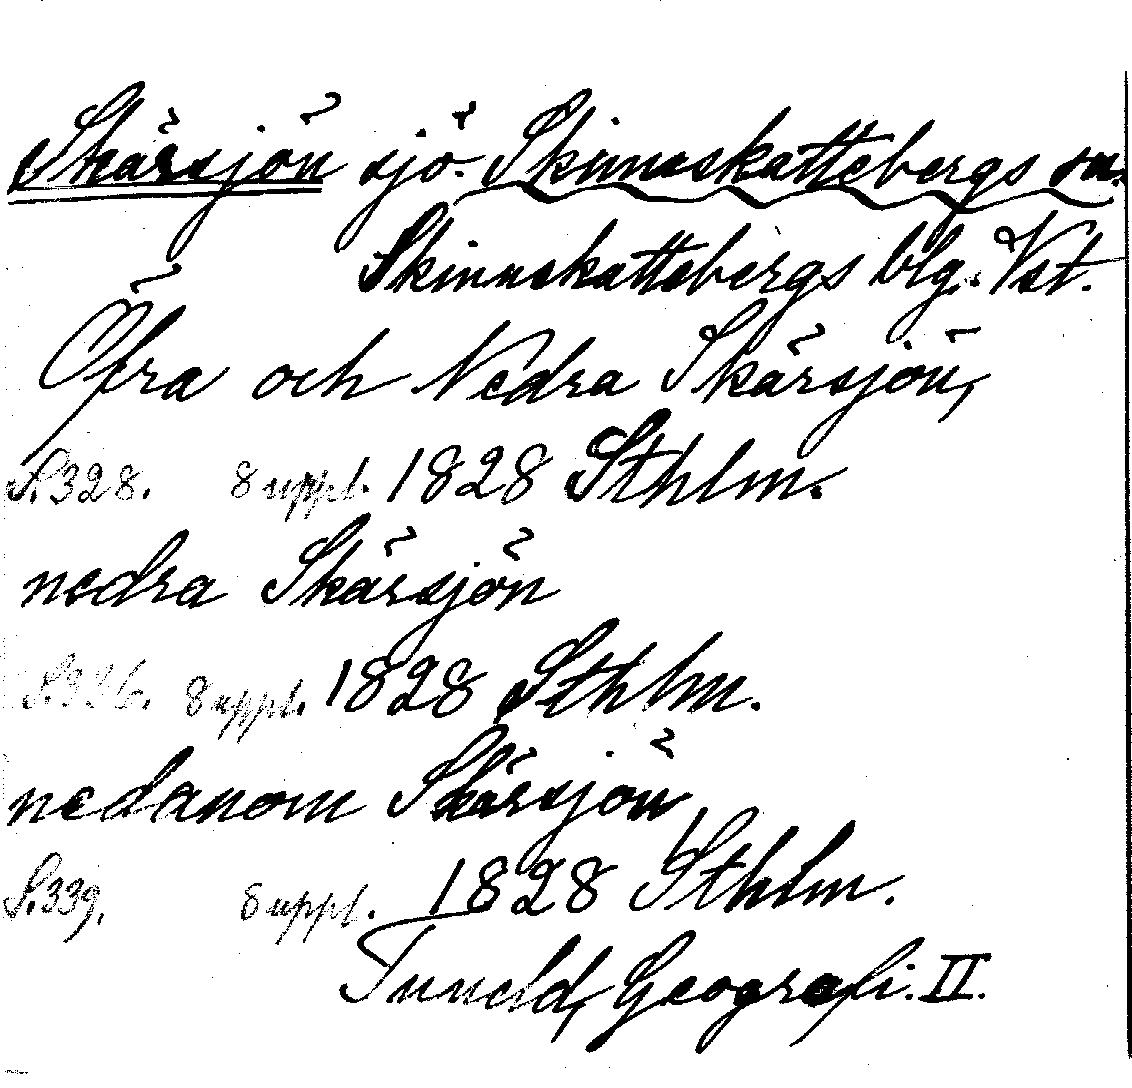 Skärsjön sjö. Skinnskattebergs sn.
Skinnskattebergs blg. Vst.
Öfra och Nedra Skärsjön,
S. 328. 8 uppl. 1828 Sthlm.
nedra Skärsjön
S. 336. 8 uppl. 1828 Sthlm.
nedanom Skärsjön
S. 339. 8 uppl. 1828 Sthlm.
Tuneld, Geografi. II.